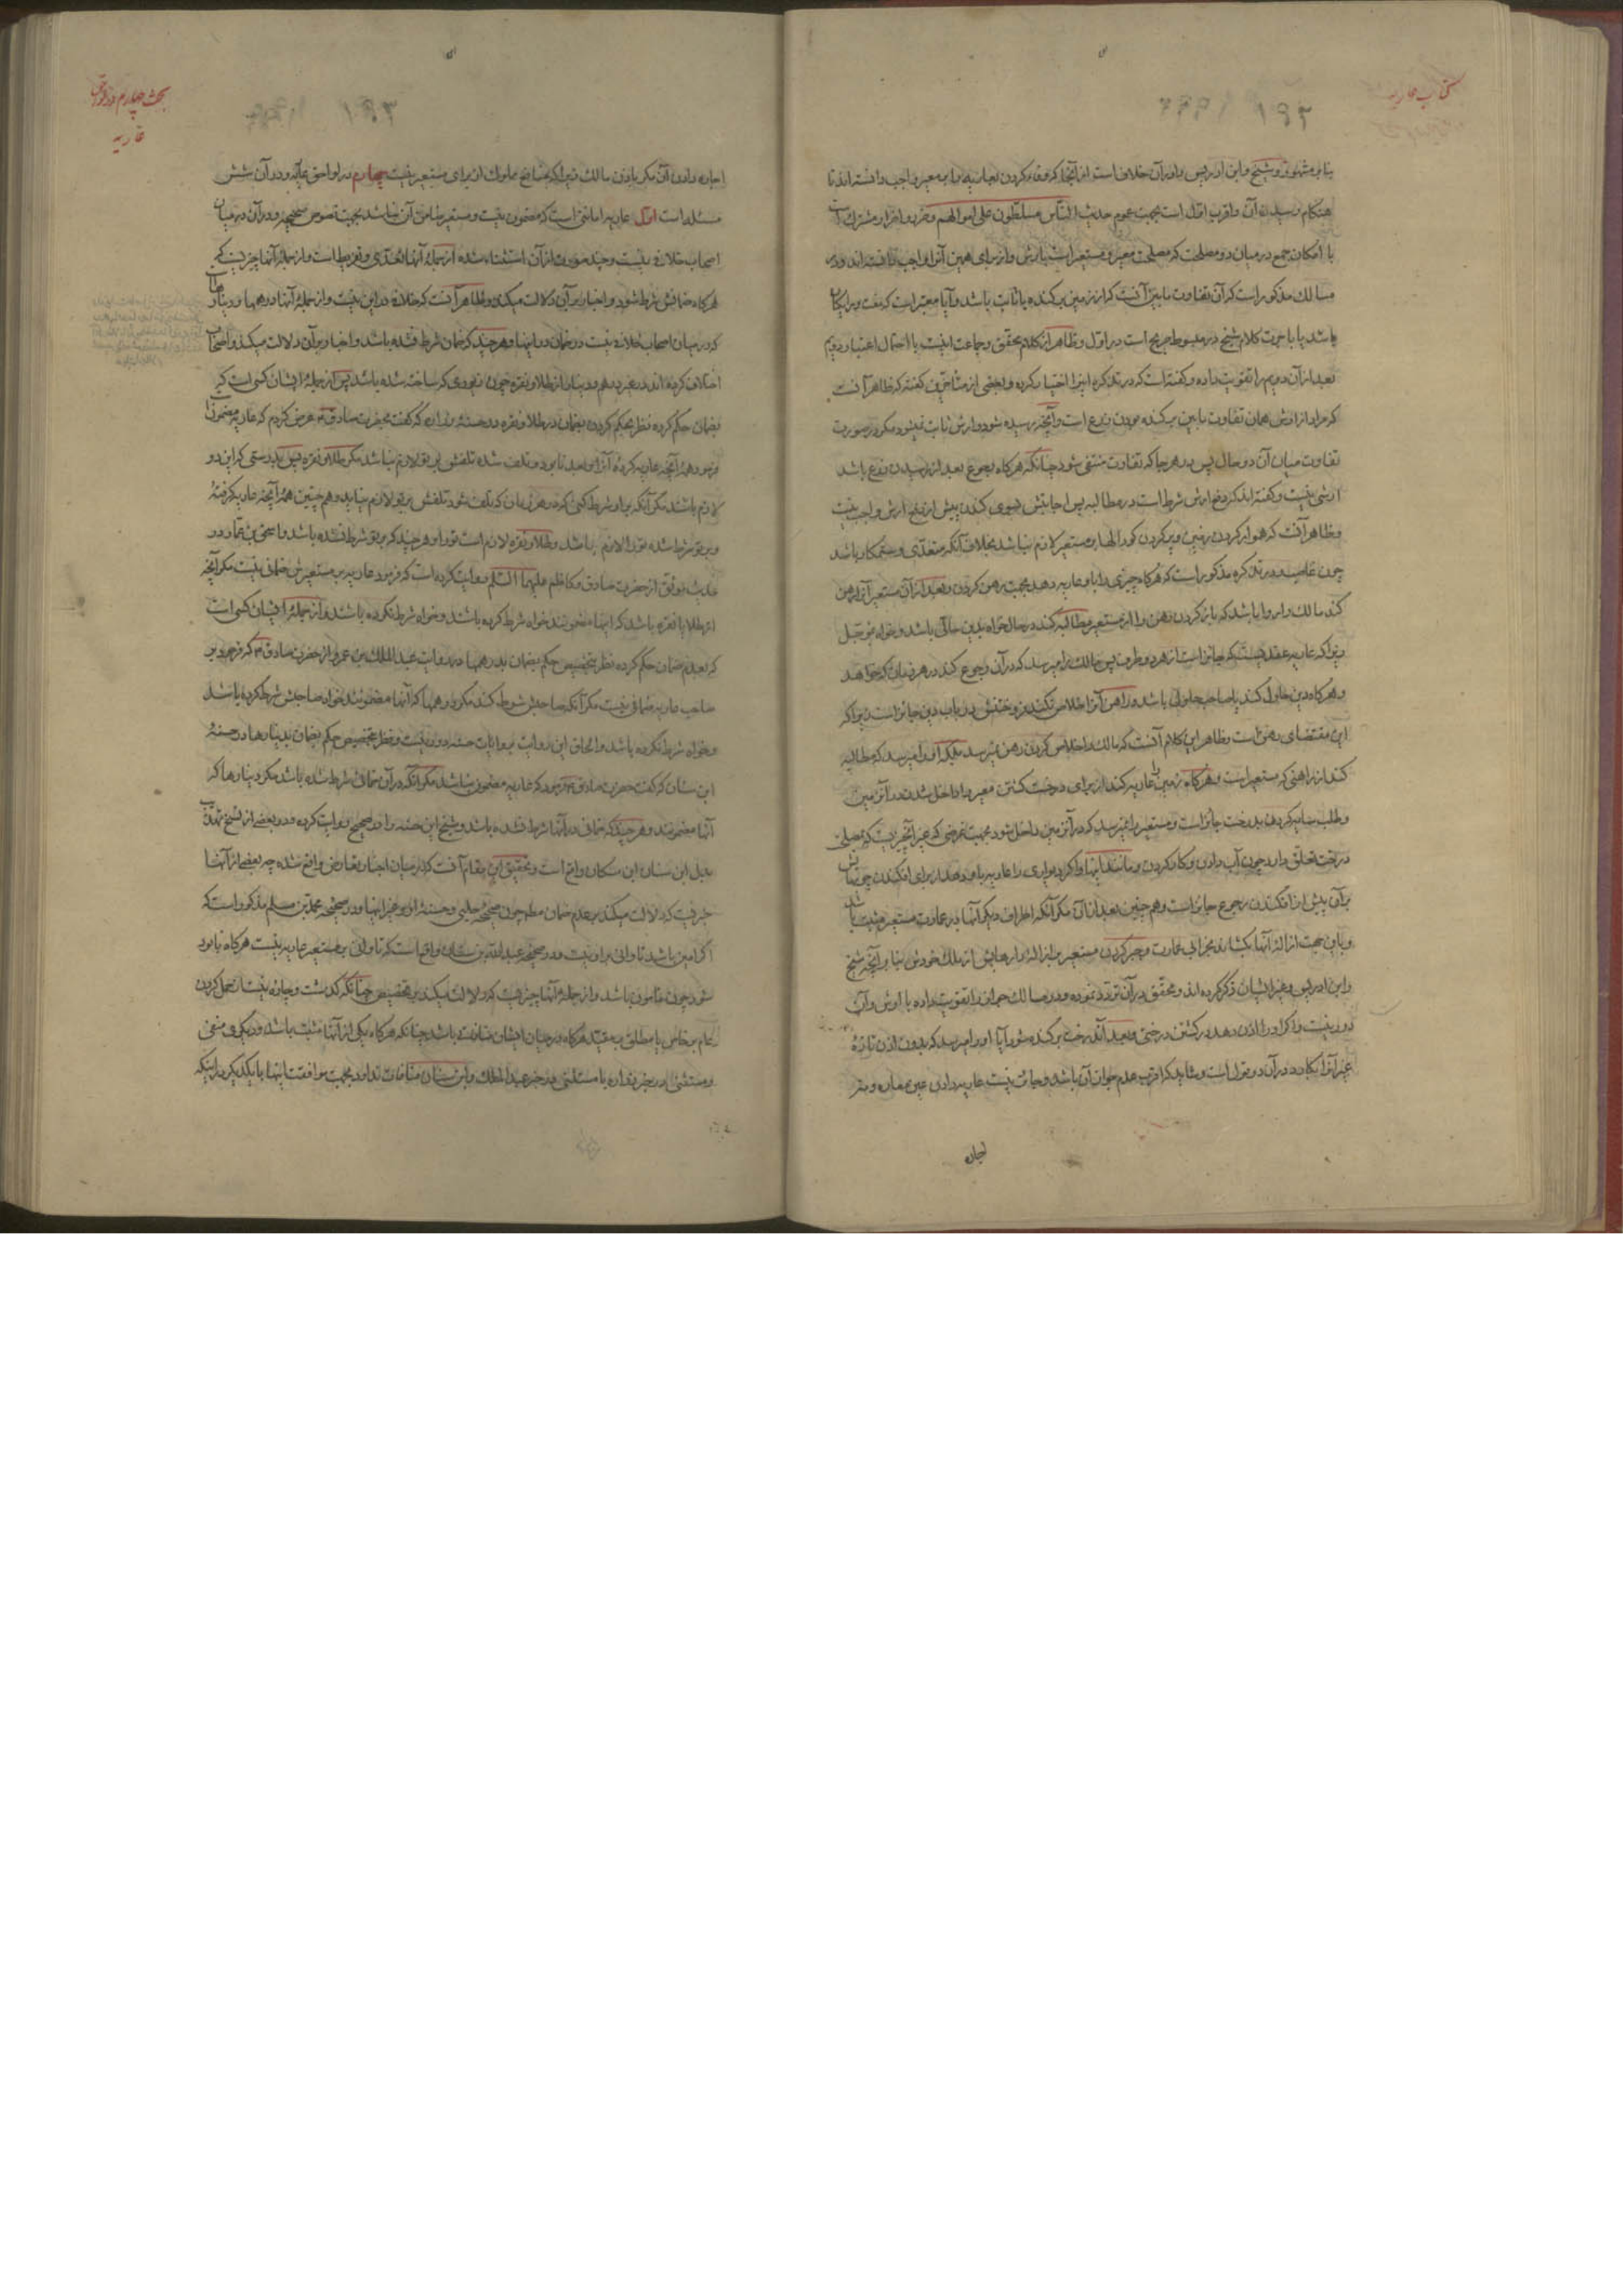 کتاب عاریه
۱۹۲
بنابر مشهور و شیخ و ابن ادریس را در آن خلاف است از آنجا که وفا کردن بعاریه را بر معیر واجب دانسته‌اند تا
هنکام رسیدن آن و اقرب اول است بجهت عموم حدیث الناس مسلطون علی اموالهم و ضرر و اضرار مشترک است
با امکان جمع در میان دو مصلحت که مصلحت معیر و مستعیر است بارش و از برای همین آنرا واجب دانسته‌اند و در
مسالک مذکور است که آن تفاوت ما بین آنست که از زمین برکنده یا ثابت باشد و آیا معتبر است که مفت و رایکان
باشد یا با اجرت کلام شیخ در مبسوط صریح است در اول و ظاهر از کلام محقق و جماعت اینست با احتمال اعتبار دویم
بعد از آن دویم را تقویت داده و کفته است که در تذکره اینرا اختیار کرده و بعضی از متأخرین کفته که ظاهر آنست
که مراد از ارش همان تفاوت ما بین برکنده بودن زرع است و آنچه رسیده شود و ارش ثابت نمیشود مکر در صورت
تفاوت میان آن دو حال پس در هر جا که تفاوت منتفی شود چنانکه هرکاه رجوع بعد از رسیدن زرع باشد
ارشی نیست و کفته‌اند که دفع ارش شرط است در مطالبه پس اجابتش بسوی کندن پیش از دفع ارش واجب نیست
و ظاهر آنست که هموار کردن زمین و پر کردن کودالها بر مستعیر لازم نباشد بخلاف آنکه متعدّی و ستمکار باشد
چون غاصب و در تذکره مذکور است که هرکاه چیزی را باو عاریه دهد بجهت رهن کردن و بعد از آن مستعیر آنرا رهن
کند مالک را روا باشد که باز کردن رهن را از مستعیر مطالبه کند در حال خواه بدین حالّی باشد و خواه مؤجّل
زیرا که عاریه عقدیست که جایز است از هر دو طرف پس مالک را میرسد که در آن رجوع کند در هر زمان که خواهد
و هرکاه دین حلول کند یا صاحب حلولی باشد و راهن آنرا خلاص نکند فروختنش در باب دین جایز است زیرا که
این مقتضای رهن است و ظاهر این کلام آنست که مالک را خلاص کردن رهن نمیرسد بلکه او را میرسد که مطالبه
کند از راهنی که مستعیر است و هرکاه زمین را عاریه کند از برای درخت کشتن معیر را داخل شدن در آن زمین
و طلب سایه کردن بدرخت جایز است و مستعیر را نمیرسد که در آن زمین داخل شود بجهت غرضی که غیر آنچیزیست که بمصلحت
درخت تعلق دارد چون آب دادن و کار کردن و مانند اینها و اکر دیواری را عاریه باو دهد از برای افکندن چوبهایش
بر آن پیش از افکندن رجوع جایز است و هم چنین بعد از آن مکر آنکه اطراف دیکر آنها در عمارت مستعیر مثبت باشد
و باین جهت ازالهٔ آنها بکشاند بخرابی عمارت و جبر کردن مستعیر بر ازاله و رهایش از ملک خودش بنابر آنچه شیخ
و ابن ادریس و غیر ایشان ذکر کرده‌اند و محقق در آن تردد نموده و در مسالک جواز را تقویت داده با ارش و آن
دور نیست و اکر او را اذن دهد در کشتن درختی و بعد آندرخت برکنده شود آیا او را میرسد که بدون اذن تازه
غیر آنرا بکارد در آن دو قول است و شاید که اقرب عدم جواز آن باشد و جایز نیست عاریه دادن عین معاره و نه
اجاره
بحث چهارم در لواحق
عاریه
۱۹۳
اجاره دادن آن مکر باذن مالک زیرا که منافع مملوک از برای مستعیر نیست چهارم در لواحق عاریه و در آن شش
مسئله است اول عاریه امانتی است که مضمون نیست و مستعیر ضامن آن نباشد بجهت نصوص صحیحه و در آن در میان
اصحاب خلافی نیست و چند موضع از آن استثناء شده از جملهٔ آنها تعدّی و تفریط است و از جملهٔ آنها چیزیست که
هرکاه ضمانش شرط شود و اخبار بر آن دلالت میکند و ظاهر آنست که خلاف در این نیست و از جملهٔ آنها درهمها و دینارهاست
که در میان اصحاب خلافی نیست در ضمان در اینها و هر چند که ضمان شرط نشده باشد و اخبار بر آن دلالت میکند و اصحاب
اختلاف کرده‌اند در غیر درهم و دینار از طلا و نقره چون زیوری که ساخته شده باشد پس از جملهٔ ایشان کسی است که
بضمان حکم کرده نظر بحکم کردن بضمان در طلا و نقره در حسنهٔ زراره که کفت بحضرت صادق ع عرض کردم که عاریه مضمونست
فرمود همهٔ آنچه عاریه کردهٔ آنرا و بعد نابود و تلف شده تلفش بر تو لازم نباشد مکر طلا و نقره پس بدرستی که این دو
لازم باشند مکر آنکه بر او شرط کنی که در هر زمان که تلف شود تلفش بر تو لازم نیاید و هم چنین همهٔ آنچه عاریه کرفتهٔ
و بر تو شرط شده تو را لازم باشد و طلا و نقره لازم است تو را و هر چند که بر تو شرط نشده باشد و اسحق بن عمار در
حدیث موثق از حضرت صادق و کاظم علیهما السّلم روایت کرده است که فرمود عاریه بر مستعیرش ضمانی نیست مکر آنچه
از طلا یا نقره باشد که اینها مضمونند خواه شرط کرده باشند و خواه شرط نکرده باشند و از جملهٔ ایشان کسی است
که بعدم ضمان حکم کرده نظر بتخصیص حکم بضمان بدرهمها در روایت عبد الملک بن عمرو از حضرت صادق ع که فرمود بر
صاحب عاریه ضمانی نیست مکر آنکه صاحبش شرط کند مکر درهمها که آنها مضمونند خواه صاحبش شرط کرده باشد
و خواه شرط نکرده باشد و الحاق این روایت بروایات حسنه دور نیست و نظر بتخصیص حکم بضمان بدینارها در حسنهٔ
ابن سنان که کفت حضرت صادق ع فرمود که عاریه مضمون نباشد مکر آنکه در آن ضمان شرط شده باشد مکر دینارها که
آنها مضمونند و هر چند که ضمان در آنها شرط نشده باشد و شیخ این حسنه را در صحیح روایت کرده و در بعضی از نسخ تهذیب
بدل ابن سنان ابن مسکان واقع است و تحقیق این مقام آنست که در میان اخبار تعارض واقع شده چه بعضی از آنها
چیزیست که دلالت میکند بر عدم ضمان مطلقا چون صحیحهٔ حلبی و حسنهٔ او و غیر اینها و در صحیحهٔ محمد بن مسلم مذکور است که
اکر امین باشد تاوانی بر او نیست و در صحیحهٔ عبد الله بن سنان واقع است که تاوانی بر مستعیر عاریه نیست هرکاه نابود
شود چون مأمون باشد و از جملهٔ آنها چیزیست که دلالت میکند بر تخصیص چنانکه کذشت و چاره نیست از حمل کردن
عام بر خاص یا مطلق بر مقید هرکاه در میان ایشان منافات باشد چنانکه هرکاه یکی از آنها مثبت باشد و دیکری منفی
و مستثنی در خبر زراره با مستثنی در خبر عبد الملک و ابن سنان منافات ندارد بجهت موافقت اینها با یکدیکر در اینکه